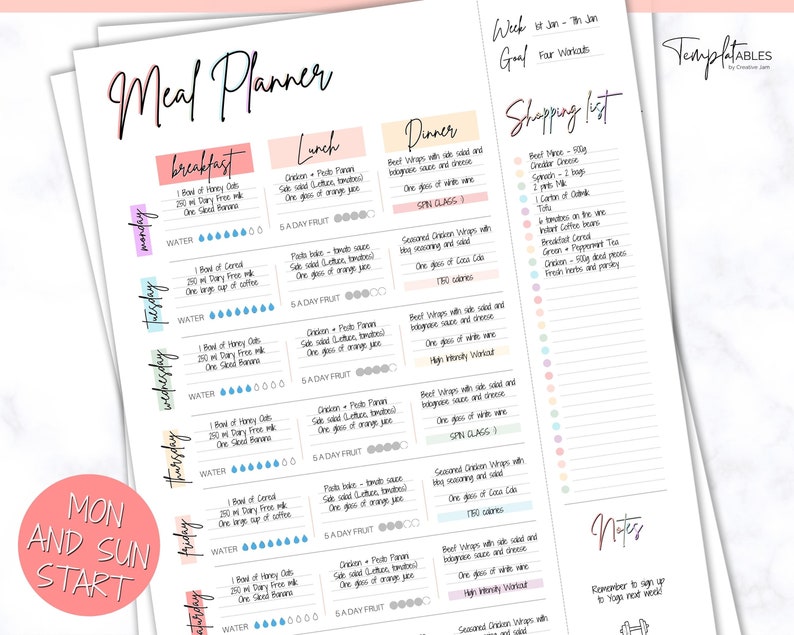 Meal Planner
Week 1st Jan - 7th Jan
Goal Four Workouts
TemplatABLES
by Creative Jam
breakfast
Lunch
Dinner
monday
1 Bowl of Honey Oats
250 ml Dairy Free milk
One Sliced Banana
WATER
Chicken + Pesto Panani
Side salad (Lettuce, tomatoes)
One glass of orange juice
5 A DAY FRUIT
Beef Wraps with side salad and
bolognase sauce and cheese
One glass of white wine
SPIN CLASS :)
tuesday
1 Bowl of Cereal
250 ml Dairy Free milk
One large cup of coffee
WATER
Pasta bake - tomato sauce
Side salad (Lettuce, tomatoes)
One glass of orange juice
5 A DAY FRUIT
Seasoned Chicken Wraps with
bbq seasoning and salad
One glass of Coca Cola
1750 calories
wednesday
1 Bowl of Honey Oats
250 ml Dairy Free milk
One Sliced Banana
WATER
Chicken + Pesto Panani
Side salad (Lettuce, tomatoes)
One glass of orange juice
5 A DAY FRUIT
Beef Wraps with side salad and
bolognase sauce and cheese
One glass of white wine
High Intensity Workout
thursday
1 Bowl of Honey Oats
250 ml Dairy Free milk
One Sliced Banana
WATER
Chicken + Pesto Panani
Side salad (Lettuce, tomatoes)
One glass of orange juice
5 A DAY FRUIT
Beef Wraps with side salad and
bolognase sauce and cheese
One glass of white wine
SPIN CLASS :)
friday
1 Bowl of Cereal
250 ml Dairy Free milk
One large cup of coffee
WATER
Pasta bake - tomato sauce
Side salad (Lettuce, tomatoes)
One glass of orange juice
5 A DAY FRUIT
Seasoned Chicken Wraps with
bbq seasoning and salad
One glass of Coca Cola
1750 calories
saturday
1 Bowl of Honey Oats
250 ml Dairy Free milk
One Sliced Banana
WATER
Chicken + Pesto Panani
Side salad (Lettuce, tomatoes)
One glass of orange juice
5 A DAY FRUIT
Beef Wraps with side salad and
bolognase sauce and cheese
One glass of white wine
High Intensity Workout
Shopping list
Beef Mince - 500g
Cheddar Cheese
Spinach - 2 bags
2 pints Milk
1 Carton of Oatmilk
Tofu
6 tomatoes on the vine
Instant Coffee beans
Breakfast Cereal
Green + Peppermint Tea
Chicken - 500g diced pieces
Fresh herbs and parsley
Notes
Remember to sign up
to Yoga next week!
MON
AND SUN
START